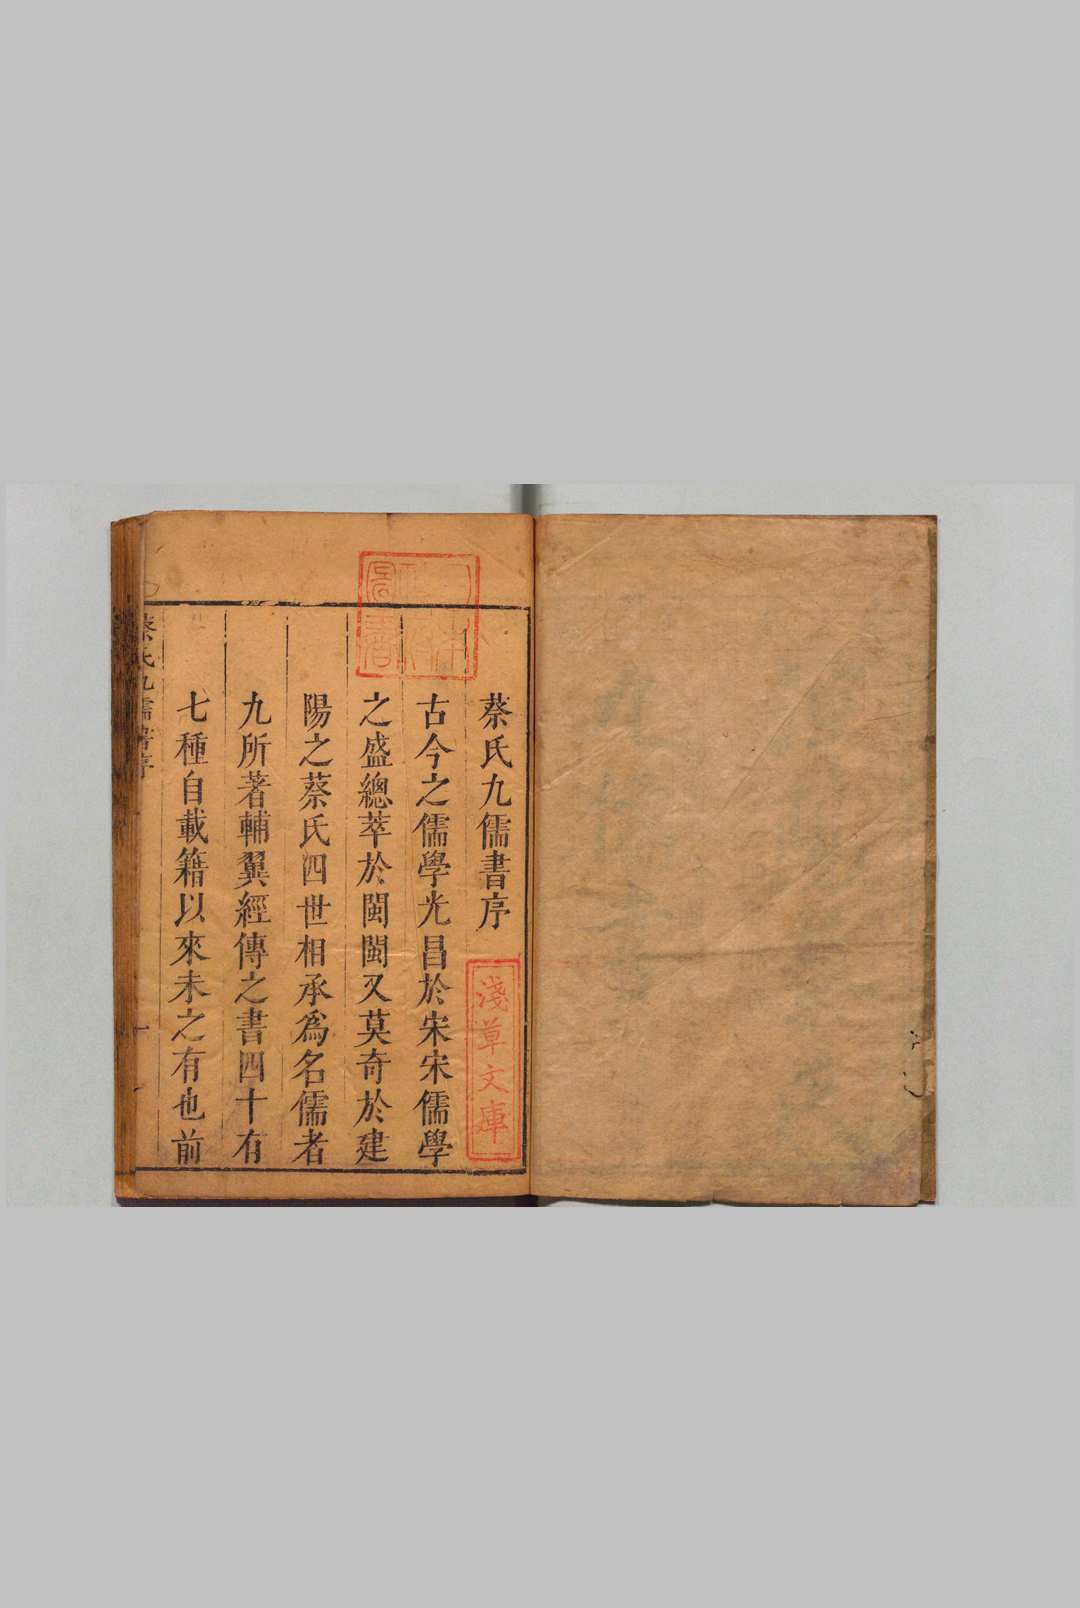 蔡氏九儒書序
古今之儒學光昌於宋宋儒學
之盛總萃於閩閩又莫奇於建
陽之蔡氏四世相承爲名儒者
九所著輔翼經傳之書四十有
七種自載籍以來未之有也前
蔡氏九儒書序
淺草文庫